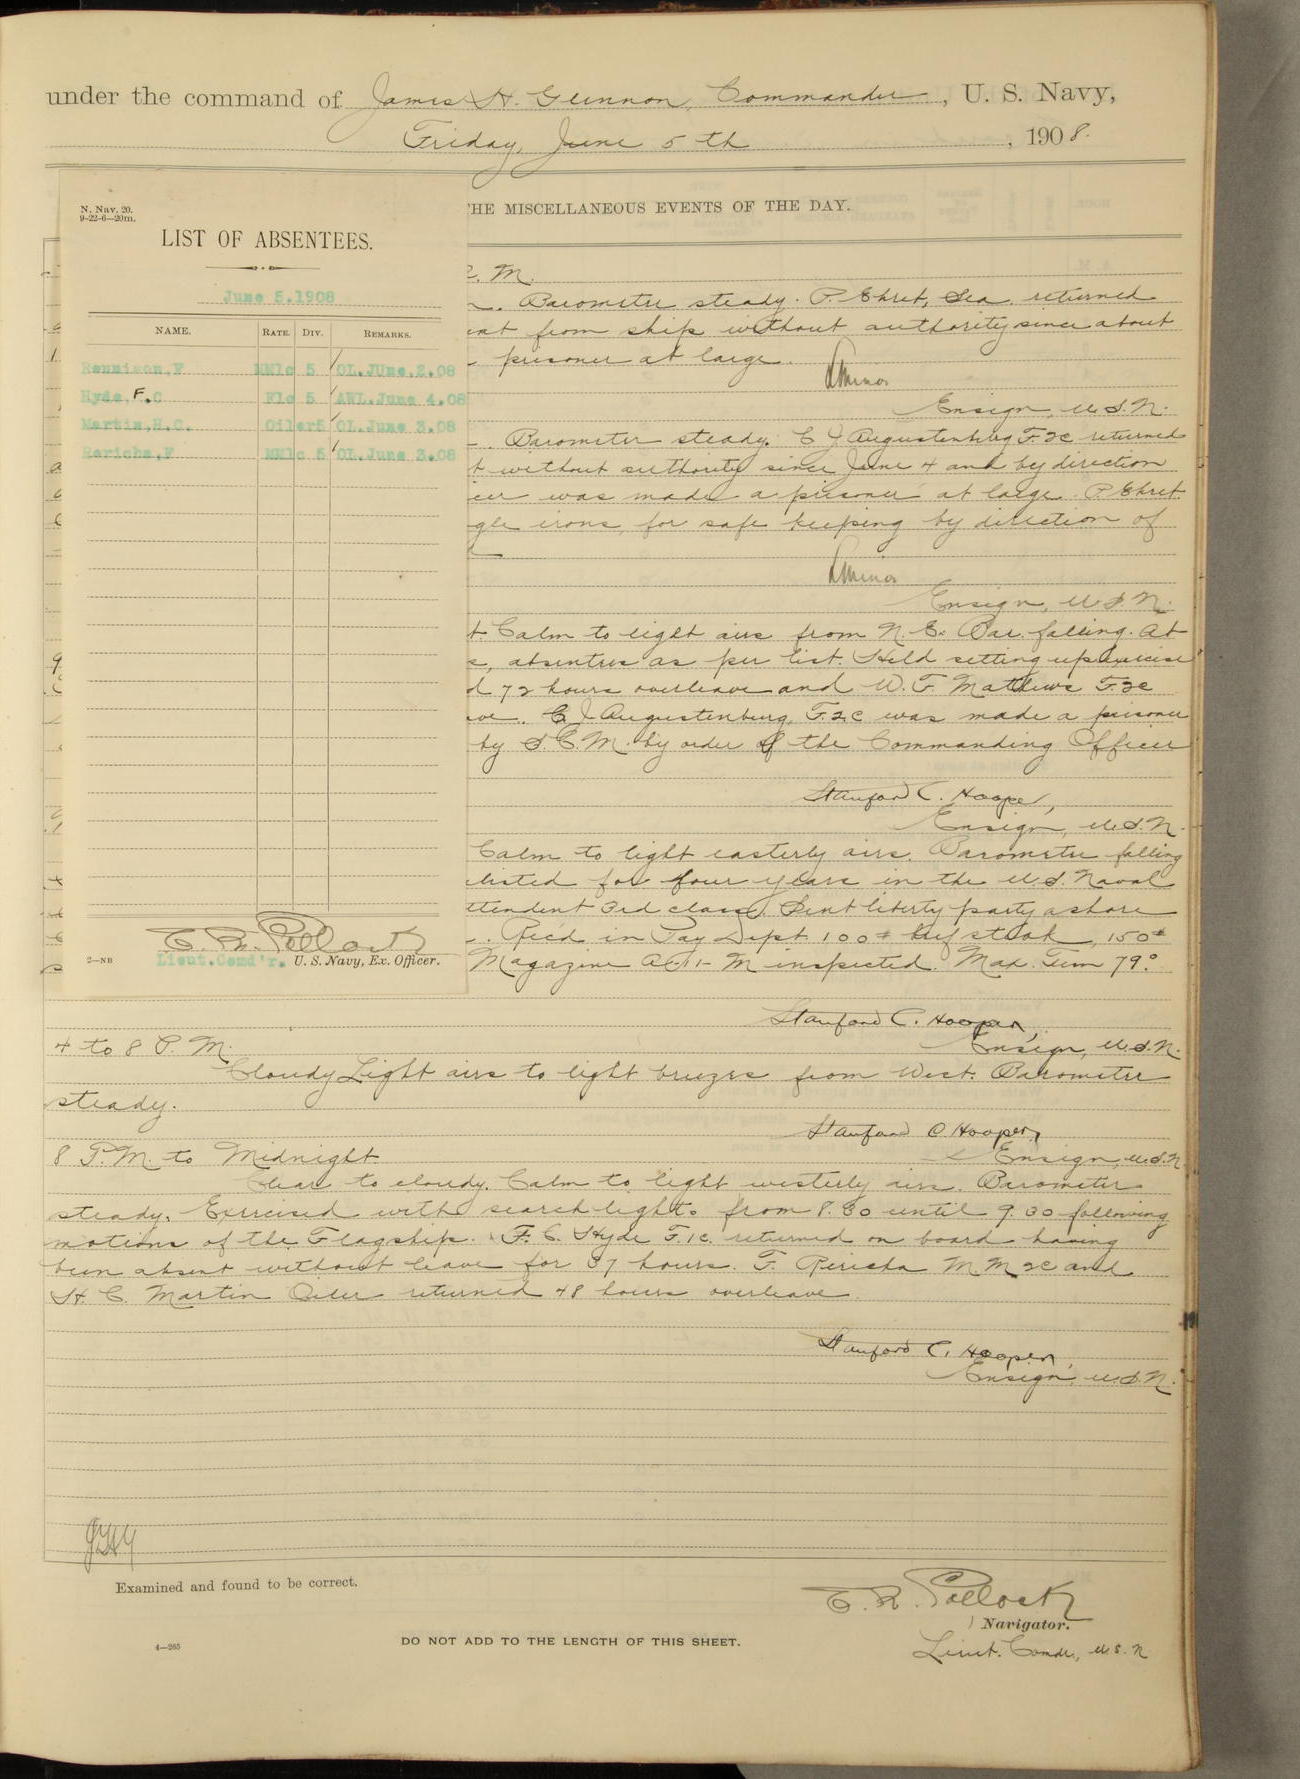 under the command of James H. Glennon, Commander, U. S. Navy,
Friday, June 5th, 1908.
THE MISCELLANEOUS EVENTS OF THE DAY.
N. Nav. 20.
9-22-6—20m.
LIST OF ABSENTEES.
June 5.1908
NAME. RATE. DIV. REMARKS.
Rennison,F MM1c 5 OL.JUne.2.08
Hyde,F.C F1c 5 AWL.June 4.08
Martin,H.C. Oiler5 OL.June 3.08
Rericha,F MM1c 5 OL.June 3.08
Lieut.Comd'r. U. S. Navy, Ex. Officer.
2—NB
M.
Barometer steady. P. Ehret, Sea. returned
from ship without authority since about
prisoner at large.
Ensign, U.S.N.
Barometer steady. C J Augustenburg F.2c returned
without authority since June 4 and by direction
was made a prisoner at large. P. Ehret
irons, for safe keeping by direction of
Ensign, U.S.N.
Calm to light airs from N.E. Bar. falling. At
absentees as per list. Held setting up exercise
72 hours overleave and W. F. Mathews F.2c
C J Augustenburg, F.2.c was made a prisoner
by S.C.M. by order of the Commanding Officer
Stanford C. Hooper,
Ensign, U.S.N.
Calm to light easterly airs. Barometer falling
for four years in the U.S. Naval
3rd class. Sent liberty party ashore
Rec'd in Pay Dept. 100# beef steak, 150#
Magazine inspected. Max. Tem 79°
Stanford C. Hooper,
Ensign, U.S.N.
4 to 8 P. M.
Cloudy Light airs to light breezes from West. Barometer
steady.
Stanford C. Hooper,
Ensign, U.S.N.
8 P.M. to Midnight.
Clear to cloudy. Calm to light westerly airs. Barometer
steady. Exercised with searchlights from 8.30 until 9.30 following
motions of the Flagship. F. C. Hyde F.1c. returned on board having
been absent without leave for 37 hours. F. Rericha M.M.2c and
H. C. Martin Oiler returned 48 hours overleave.
Stanford C. Hooper,
Ensign, U.S.N.
Examined and found to be correct.
E. R. Pollock
Navigator.
Lieut. Comdr., U.S.N
4—265
DO NOT ADD TO THE LENGTH OF THIS SHEET.